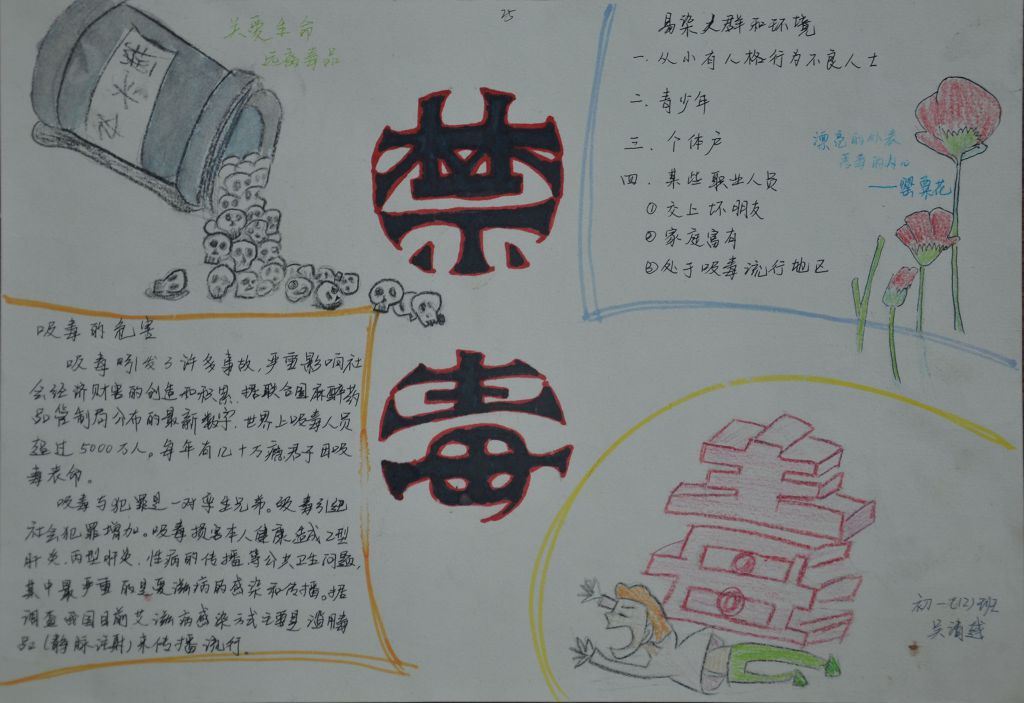 25
关爱生命
远离毒品
禁
毒
易染人群和环境
一、从小有人格行为不良人士
二、青少年
三、个体户
四、某些职业人员
①交上坏朋友
②家庭富有
③处于吸毒流行地区
漂亮的外表
——罂粟花
吸毒的危害
吸毒吲发了许多事故,严重影响社
会经济财富的创造和积累,据联合国麻醉药
品管制局分布的最新数字,世界上吸毒人员
超过5000万人。每年有几十万瘾君子因吸
毒丧命。
吸毒与犯罪是一对孪生兄弟。吸毒引起
社会犯罪增加。吸毒损害本人健康,造成乙型
肝炎、丙型肝炎、性病的传播等公共卫生问题,
其中最严重的是爱滋病的感染和传播。据
调查我国目前艾滋病感染方式主要是
品(静脉注射)来传播流行。
毒
初一(2)班